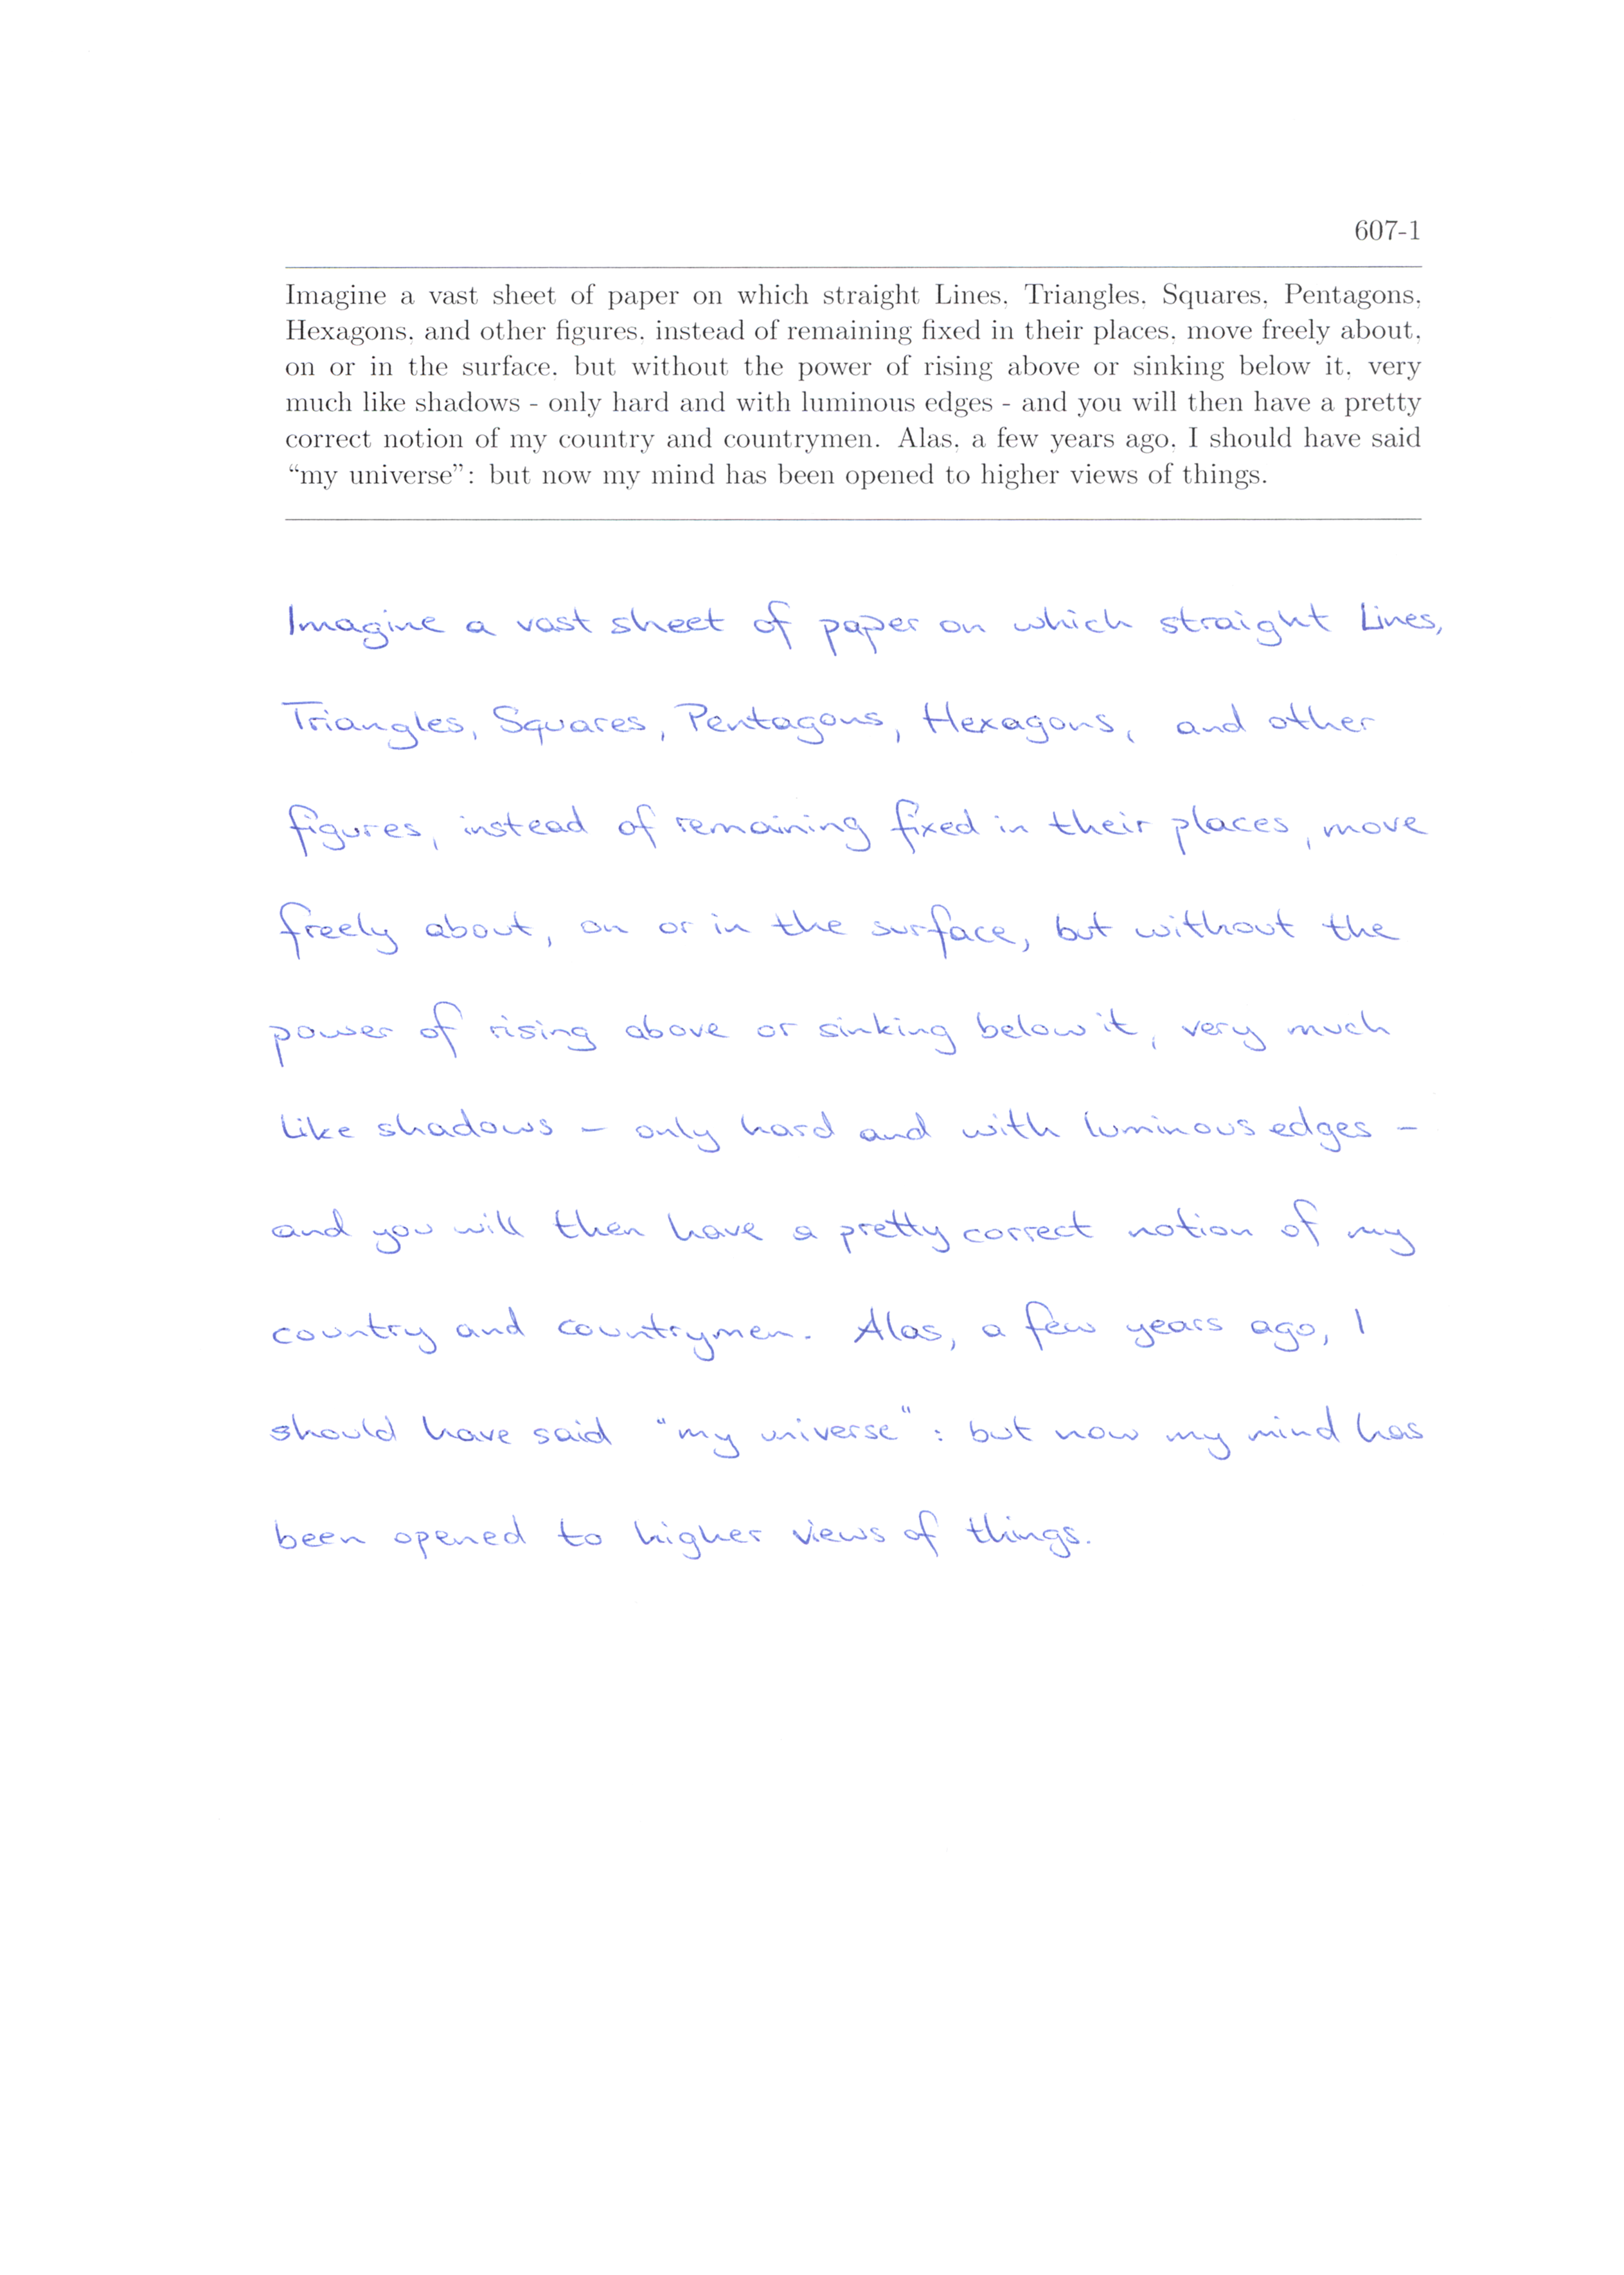 607-1
Imagine a vast sheet of paper on which straight Lines, Triangles, Squares, Pentagons,
Hexagons, and other figures, instead of remaining fixed in their places, move freely about,
on or in the surface, but without the power of rising above or sinking below it, very
much like shadows - only hard and with luminous edges - and you will then have a pretty
correct notion of my country and countrymen. Alas, a few years ago, I should have said
“my universe”: but now my mind has been opened to higher views of things.
Imagine a vast sheet of paper on which straight Lines,
Triangles, Squares, Pentagons, Hexagons, and other
figures, instead of remaining fixed in their places, move
freely about, on or in the surface, but without the
power of rising above or sinking below it, very much
like shadows - only hard and with luminous edges -
and you will then have a pretty correct notion of my
country and countrymen. Alas, a few years ago, I
should have said "my universe": but now my mind has
been opened to higher views of things.